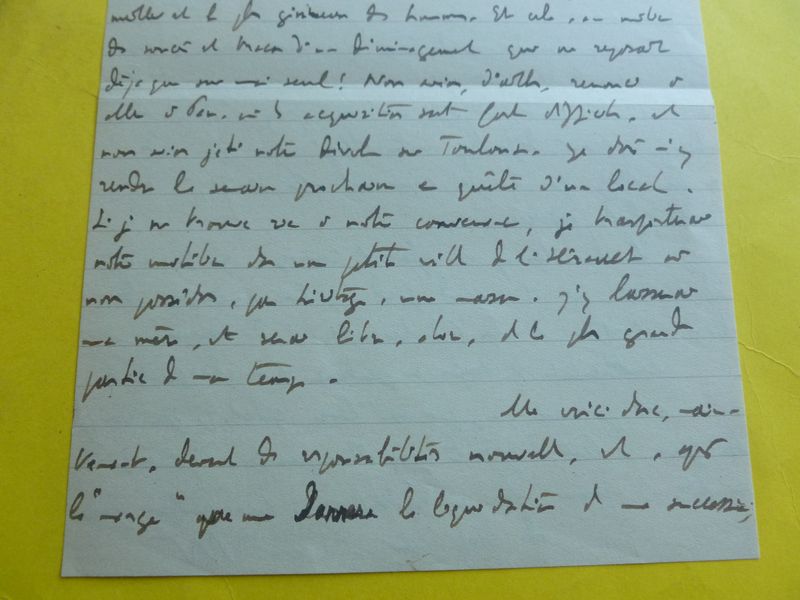 meilleur et le plus généreux des hommes. Et cela, au milieu
des soucis et tracas d'un déménagement qui ne reposait
déjà que sur moi seul! Nous avions, d'ailleurs, renoncé à
aller à où les acquisitions sont fort difficiles, et
nous avions jeté notre dévolu sur Toulouse. Je dois m'y
rendre la semaine prochaine en quête d'un local.
Si je ne trouve rien à notre convenance, je transporterai
notre mobilier dans une petite ville de l'Hérault où
nous possédons, par héritage, une maison. J'y laisserai
ma mère, et serai libre, alors, de la plus grande
partie de mon temps.
Me voici donc, main-
tenant, devant des responsabilités nouvelles, et, après
la "marge" que me laissera la liquidation de ma succession,